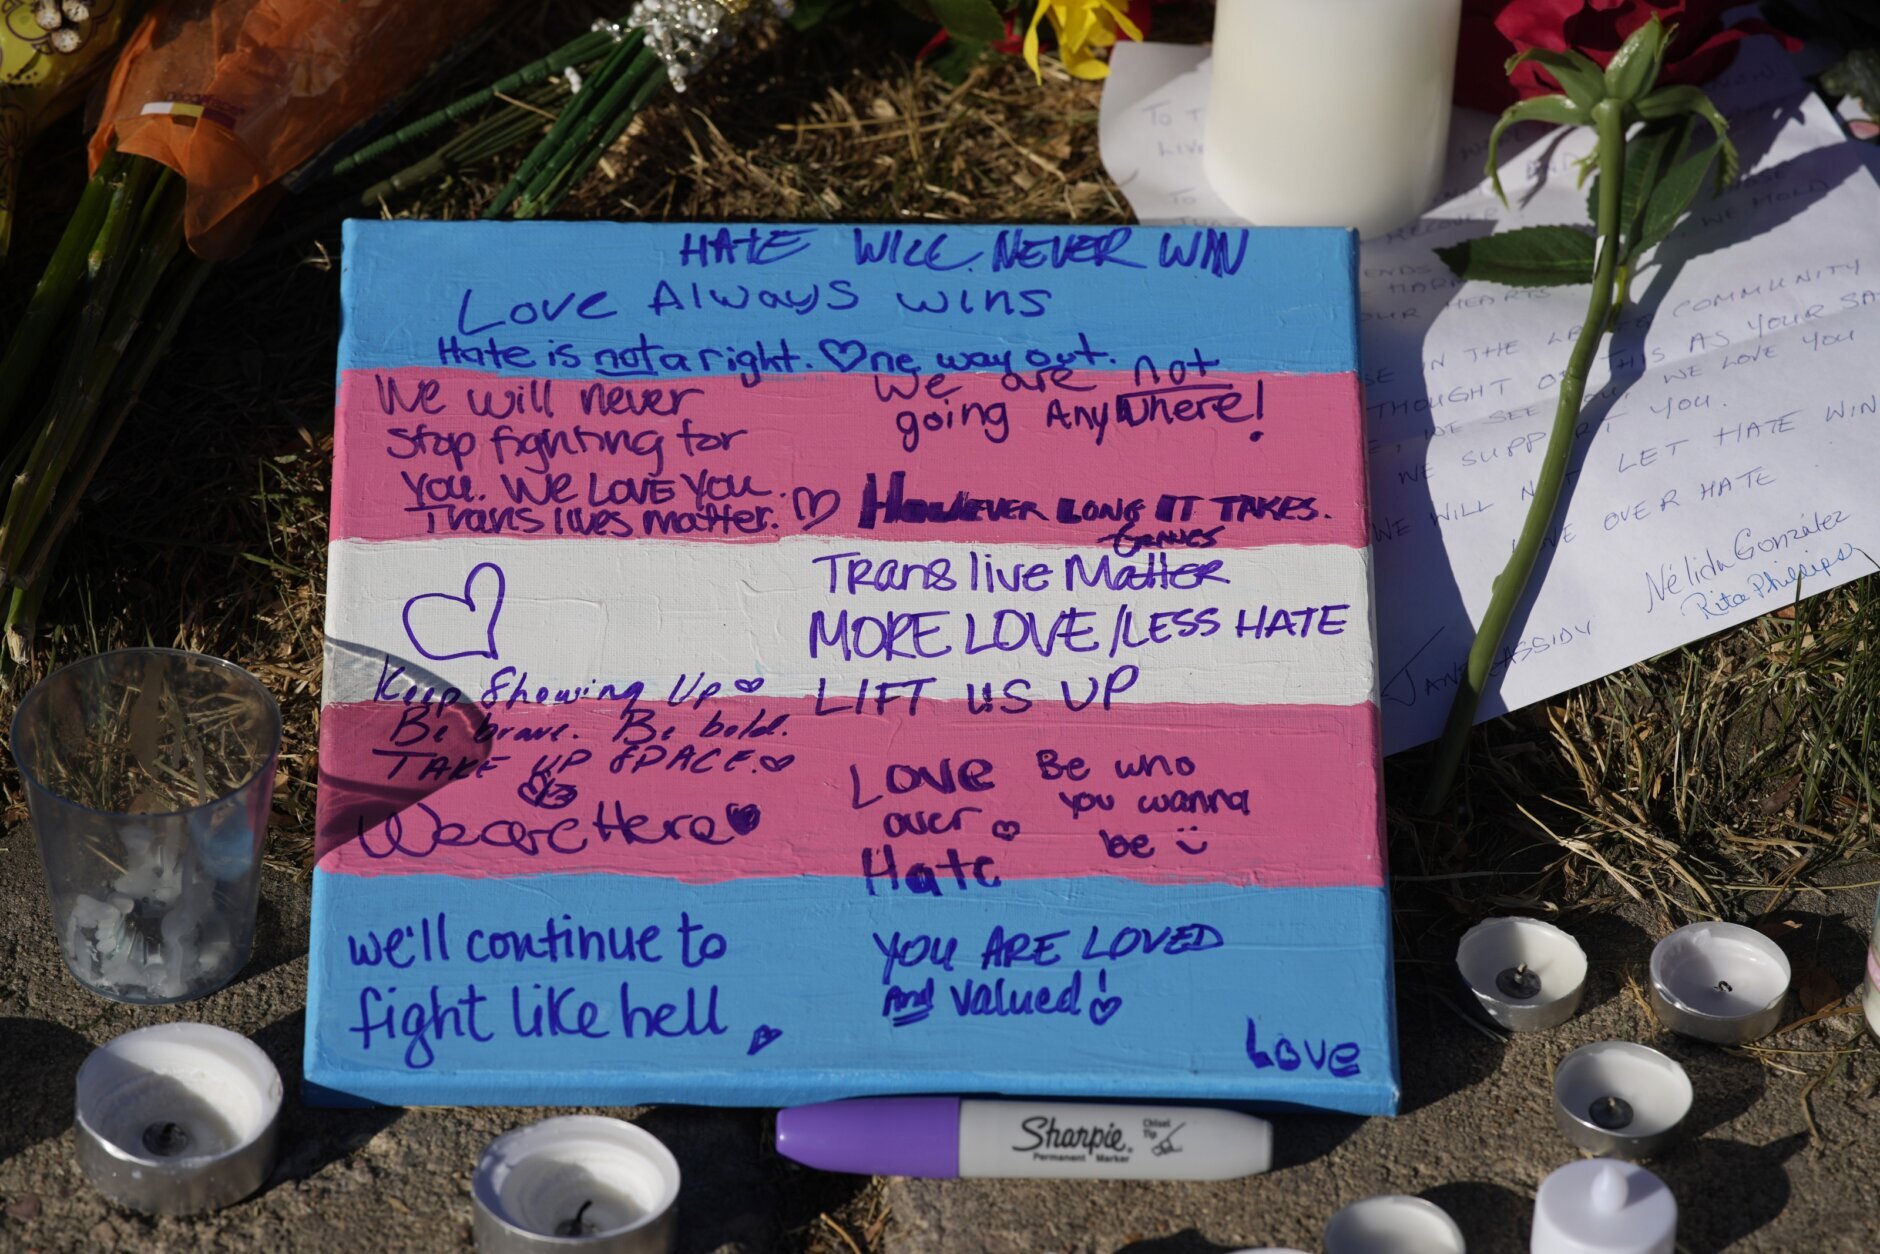 HATE WILL NEVER WIN
Love Always wins
Hate is not a right. ♡ne way out.
We will never
stop fighting for
you. We Love You.
Trans lives matter. ♡
We are not
going Anywhere!
However long it takes.
Trans live Matter
MORE LOVE/LESS HATE
LIFT US UP
Keep Showing Up ♡
Be brave. Be bold.
TAKE UP SPACE. ♡
We are Here ♥
Love
over ♡
Hate
Be who
you wanna
be
we'll continue to
fight like hell
YOU ARE LOVED
And valued!
Love
Sharpie.
Permanent Marker
Chisel
Tip
TO
LIV
TO
WE HOLD
HARM
OUR HEARTS
IN THE COMMUNITY
THOUGHT THIS AS YOUR
WE SEE YOU, WE LOVE YOU
WE SUPPORT YOU.
WE WILL LET HATE WIN
LOVE OVER HATE
Nélida González
Rita Phillips
JANE CASSIDY